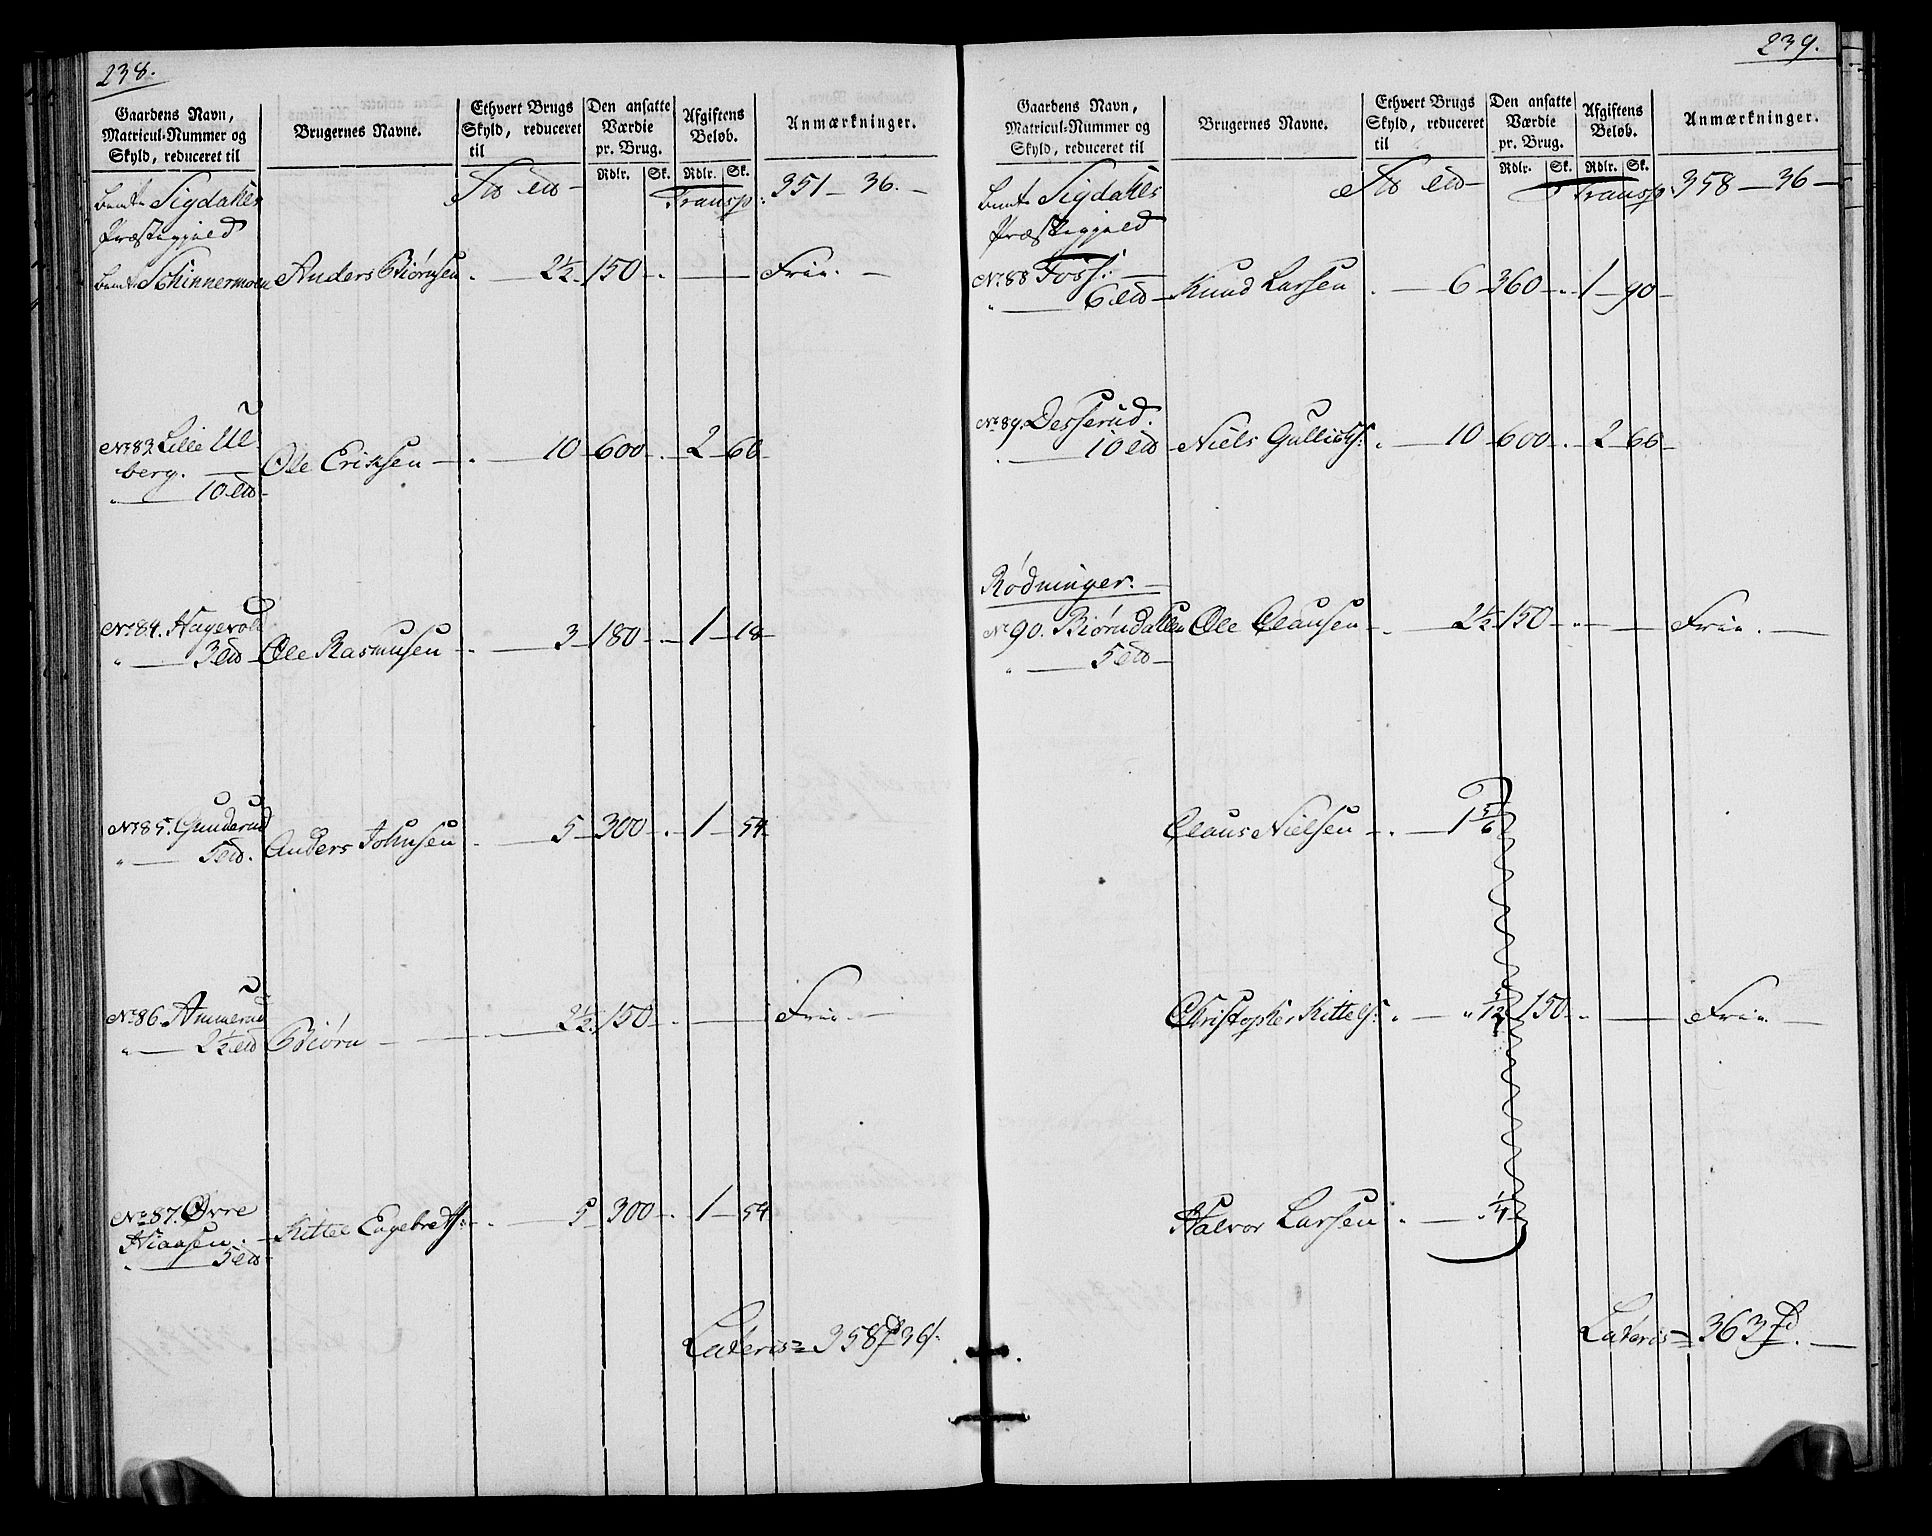 238.
Gaardens Navn,
Matricul-Nummer og
Skyld, reduceret til
Brugernes Navne.
Ethvert Brugs
Skyld, reduceret
til
Den ansatte
Værdie
pr. Brug.
Rdlr. Sk.
Afgiftens
Beløb.
Rdlr. Sk.
Anmærkninger.
Sigdahls
Præstegjeld
Transp: 351 — 36. —
Schinnermoen Anders Biørnsen . — 2½ 150 — . — — Frie. —
No. 83. Lille Ul
berg. — Ole Erichsen — . — 10 — 600 — . — 2 — 60 —
" — 10
No. 84. Hagevold
" — 3 Ole Rasmusen — . — 3 — 180 — . — 1 — 18 —
No. 85. Gunderud
" — 5 Anders Johnsen . — 5 — 300 — . — 1 — 54
No. 86. Ammerud
" — 2½ Biørn — — 2½ 150 — . — — Frie. —
No. 87. Øvre
Kittel Engebretss: — . — 5 — 300 — . — 1 — 54
" — 5
Lateris = 358 36
239.
Gaardens Navn,
Matricul-Nummer og
Skyld, reduceret til
Brugernes Navne.
Ethvert Brugs
Skyld, reduceret
til
Den ansatte
Værdie
pr. Brug.
Rdlr. Sk.
Afgiftens
Beløb.
Rdlr. Sk.
Anmærkninger.
Sigdahls
Præstegjeld
Transp 358 — 36 —
No. 88 Foss: —
" — 6 Knud Larsen . — 6 — 360 — . 1 — 90 —
No. 89. Desserud.
10 — Niels Gullichs: . — 10 — 600 — . — 2 — 60 —
Rødninger. —
No. 90. Biørndallen Ole Clausen — . — 2½ 150 — . — — Frie. —
" — 5
Claus Nielsen — . — 1 5/6
Christopher Kittels: . — " 5/12 150 — . — — Frie. —
Halvor Larsen . — ¼
Lateris = 363 . —